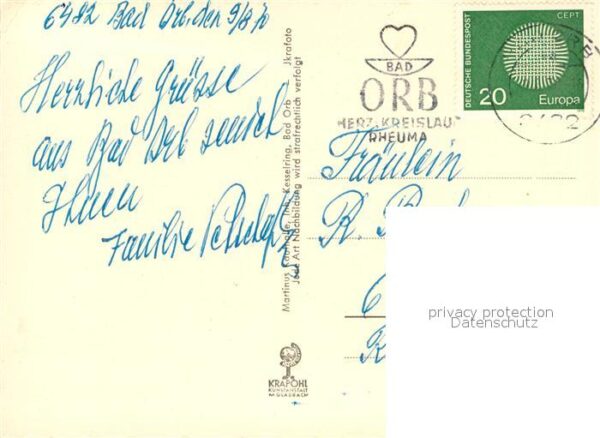 6482 Bad Orb, den 9/8 70
Herzliche Grüsse
aus Bad Orb sendet
Ihnen
Familie
Martinus Kaufhalle, Inh. Kesselring, Bad Orb Jkrafoto
Jede Art Nachbildung wird strafrechtlich verfolgt
KRAPOHL
KUNSTANSTALT
M.GLADBACH
BAD
ORB
HERZ-KREISLAUF
RHEUMA
DEUTSCHE BUNDESPOST
CEPT
20 Europa
Fräulein
R.
privacy protection
Datenschutz